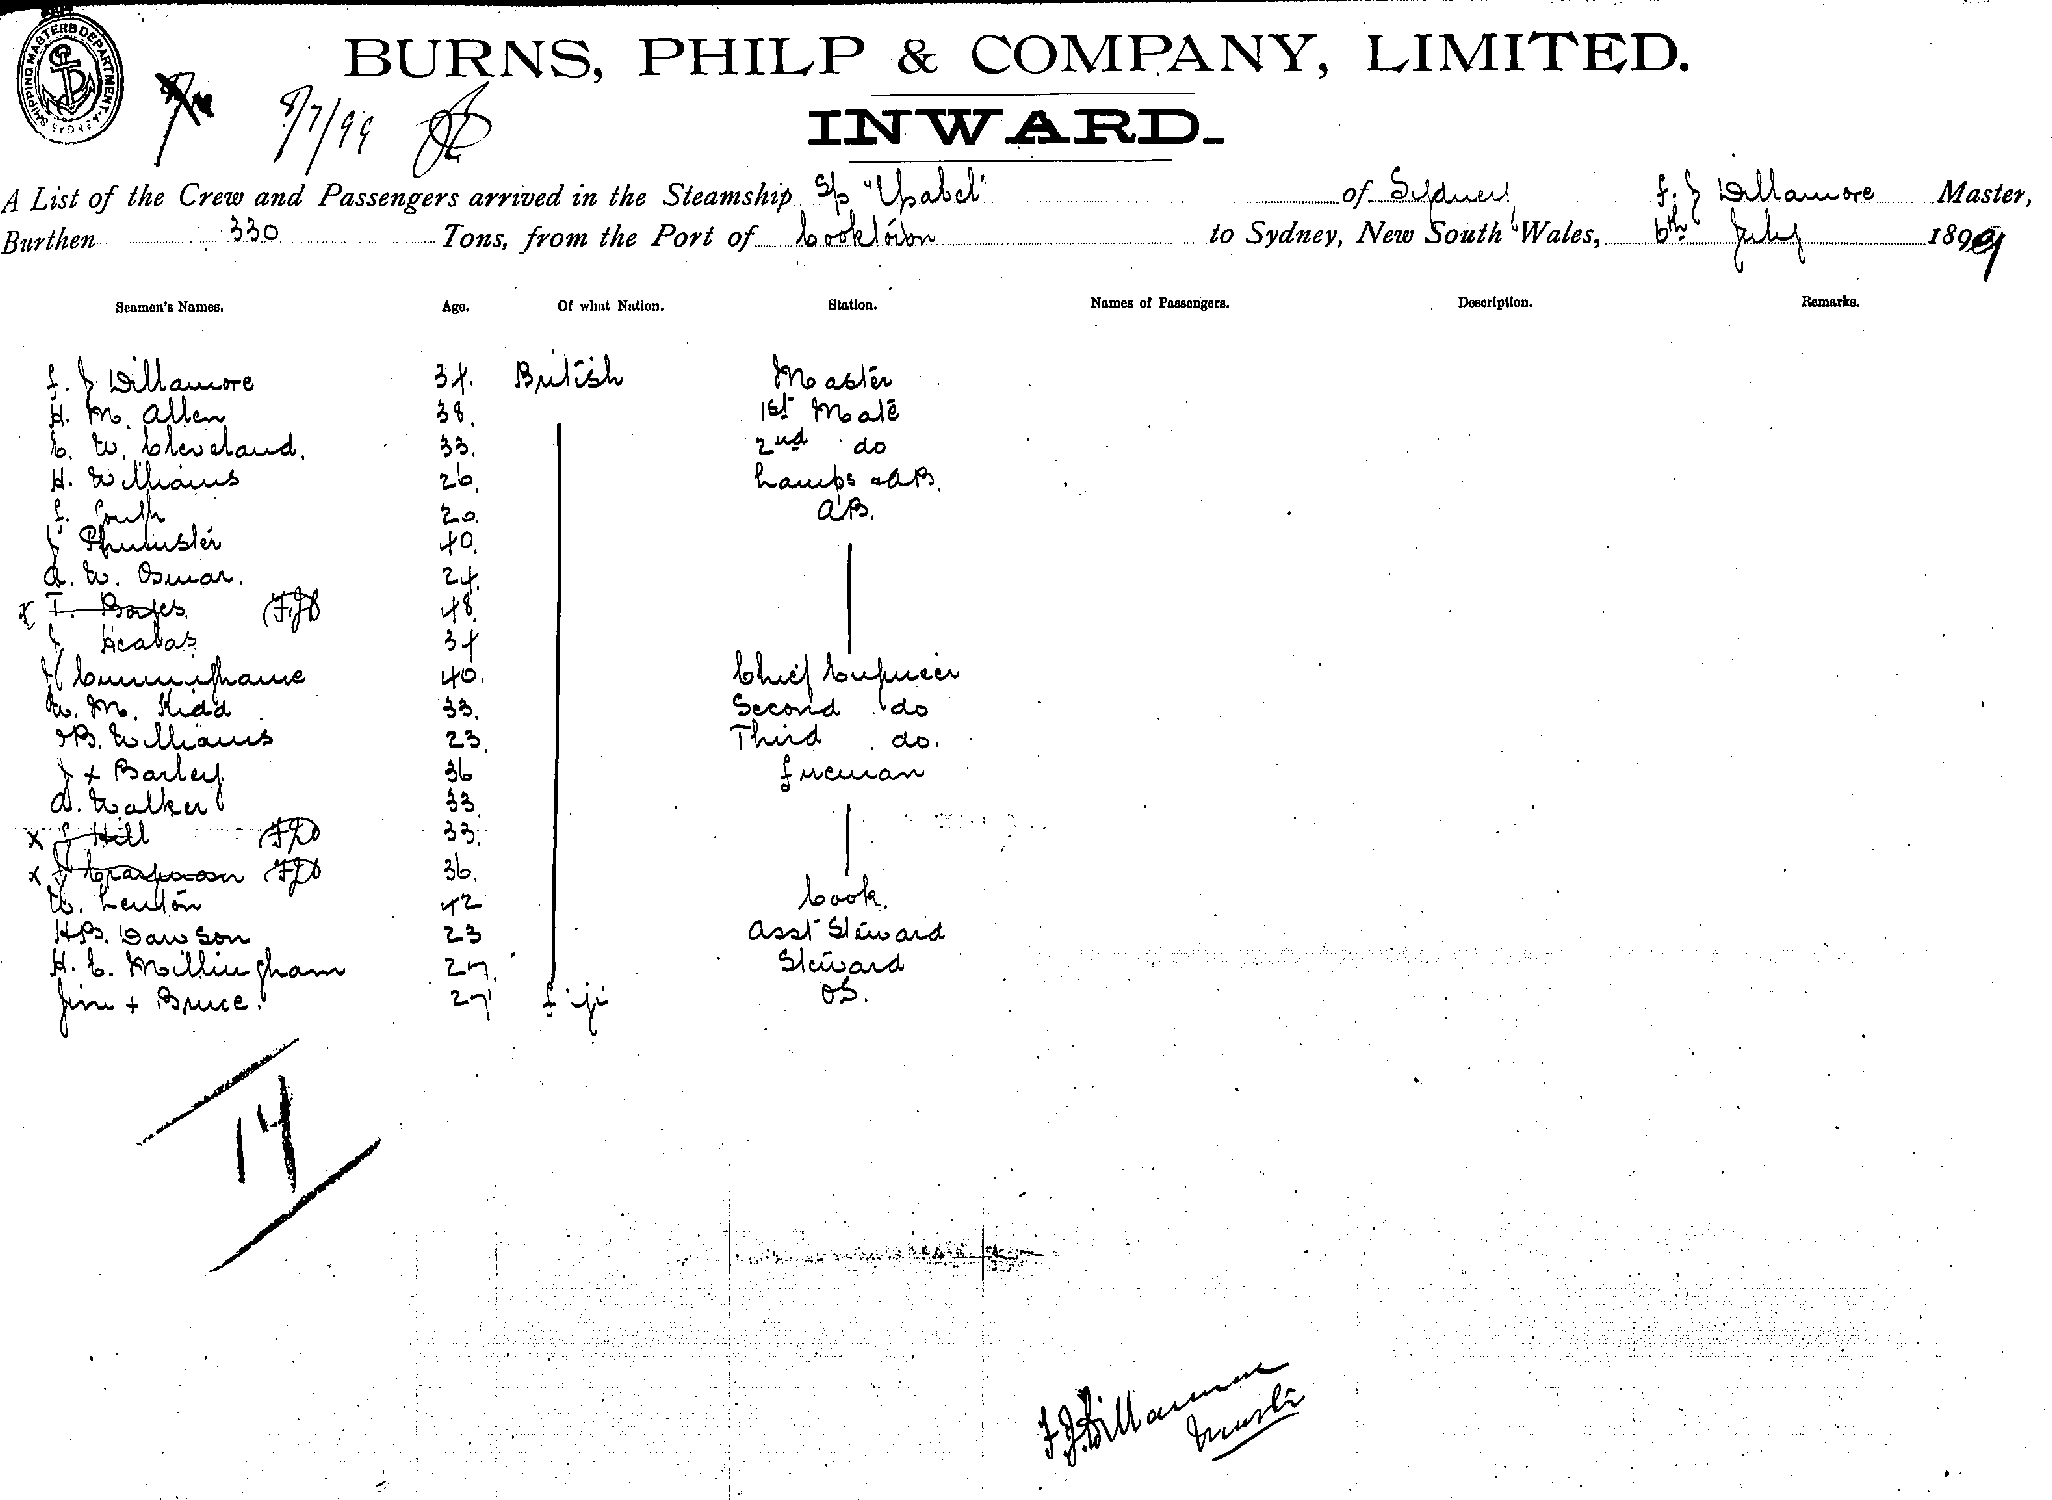 SHIPPING MASTERS DEPARTMENT SYDNEY
8/7/99
BURNS, PHILP & COMPANY, LIMITED.
INWARD.
A List of the Crew and Passengers arrived in the Steamship S/s "Ysabel" of Sydney F. J Dillamore Master,
Burthen 330 Tons, from the Port of Cooktown to Sydney, New South Wales, 6th July 1899
Seamen's Names. Age. Of what Nation. Station. Names of Passengers. Description. Remarks.
F. J Dillamore 34. British Master
H. M. Allen 38. 1st Mate
C. W. Cleveland. 33. 2nd do
H. Williams 26. Lamps & AB.
F. South 20. AB.
J Phimister 40.
A. W. Osmar. 24.
x T. Boyes FJD 48.
J 34
Cunninghame 40. Chief Engineer
W. M. Kidd 33. Second do
B. Williams 23. Third do.
J x Barley 36 Fireman
A. Walker 33.
x J Hill FJD 33.
x J FJD 36.
W. Lenton 42 Cook.
H B. Dawson 23 Asst Steward
H. E. Millingham 27. Steward
Jim + Bruce. 27 Fiji OS.
14
F J Dillamore
Master